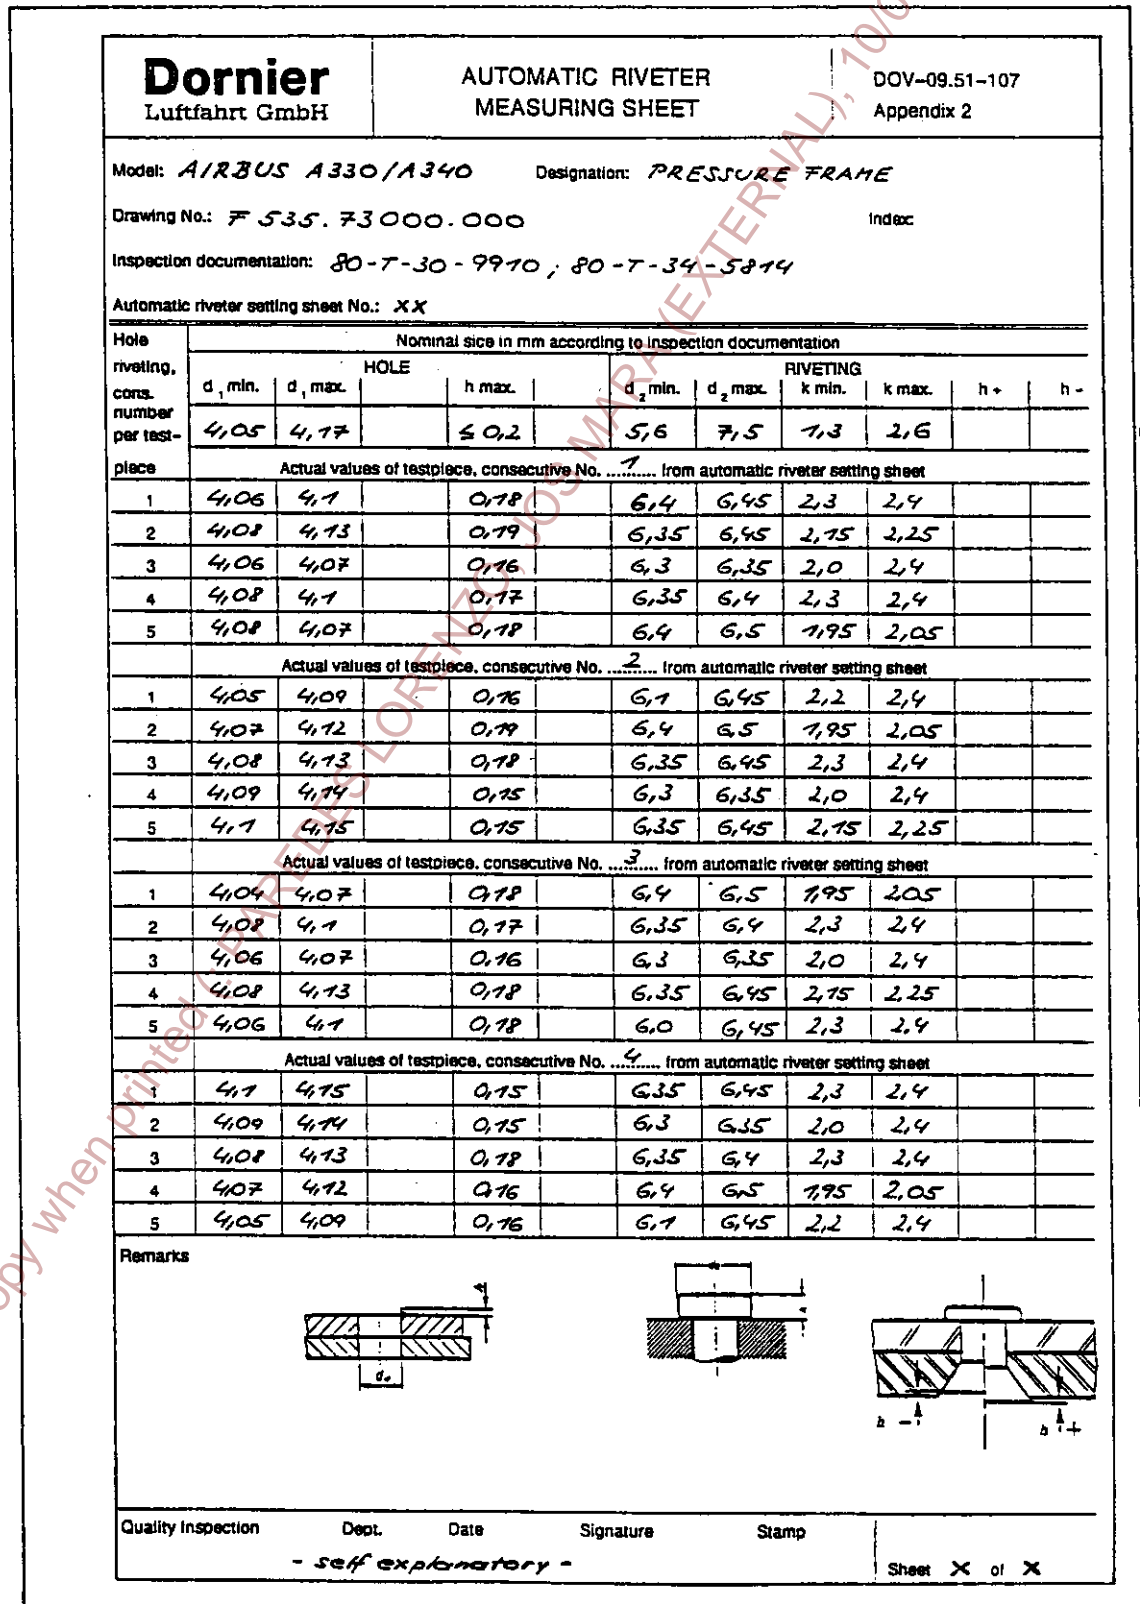 Dornier
Luftfahrt GmbH
AUTOMATIC RIVETER
MEASURING SHEET
DOV-09.51-107
Appendix 2
Model: AIRBUS A330/A340 Designation: PRESSURE FRAME
Drawing No.: F 535.73000.000 Index:
Inspection documentation: 80-T-30-9910 ; 80-T-34-5814
Automatic riveter setting sheet No.: XX
Hole riveting, cons. number per test- piece
Nominal sice in mm according to inspection documentation
HOLE RIVETING
d 1 min. d 1 max. h max. d 2 min. d 2 max. k min. k max. h + h -
4,05 4,17 ≤ 0,2 5,6 7,5 1,3 2,6
Actual values of testpiece, consecutive No. ...1... from automatic riveter setting sheet
1 4,06 4,1 0,18 6,4 6,45 2,3 2,4
2 4,08 4,13 0,19 6,35 6,45 2,15 2,25
3 4,06 4,07 0,16 6,3 6,35 2,0 2,4
4 4,08 4,1 0,17 6,35 6,4 2,3 2,4
5 4,08 4,07 0,18 6,4 6,5 1,95 2,05
Actual values of testpiece, consecutive No. ...2... from automatic riveter setting sheet
1 4,05 4,09 0,16 6,1 6,45 2,2 2,4
2 4,07 4,12 0,19 6,4 6,5 1,95 2,05
3 4,08 4,13 0,18 6,35 6,45 2,3 2,4
4 4,09 4,14 0,15 6,3 6,35 2,0 2,4
5 4,1 4,15 0,15 6,35 6,45 2,15 2,25
Actual values of testpiece, consecutive No. ...3... from automatic riveter setting sheet
1 4,04 4,07 0,18 6,4 6,5 1,95 2,05
2 4,08 4,1 0,17 6,35 6,4 2,3 2,4
3 4,06 4,07 0,16 6,3 6,35 2,0 2,4
4 4,08 4,13 0,18 6,35 6,45 2,15 2,25
5 4,06 4,1 0,18 6,0 6,45 2,3 2,4
Actual values of testpiece, consecutive No. ...4... from automatic riveter setting sheet
1 4,1 4,15 0,15 6,35 6,45 2,3 2,4
2 4,09 4,14 0,15 6,3 6,35 2,0 2,4
3 4,08 4,13 0,18 6,35 6,4 2,3 2,4
4 4,07 4,12 0,16 6,4 6,5 1,95 2,05
5 4,05 4,09 0,16 6,1 6,45 2,2 2,4
Remarks
h -
h +
Quality Inspection Dept. Date Signature Stamp
- self explanatory -
Sheet X of X
opy when printed (: PAREDES LORENZO, JOS MARA (EXTERNAL), 10/0